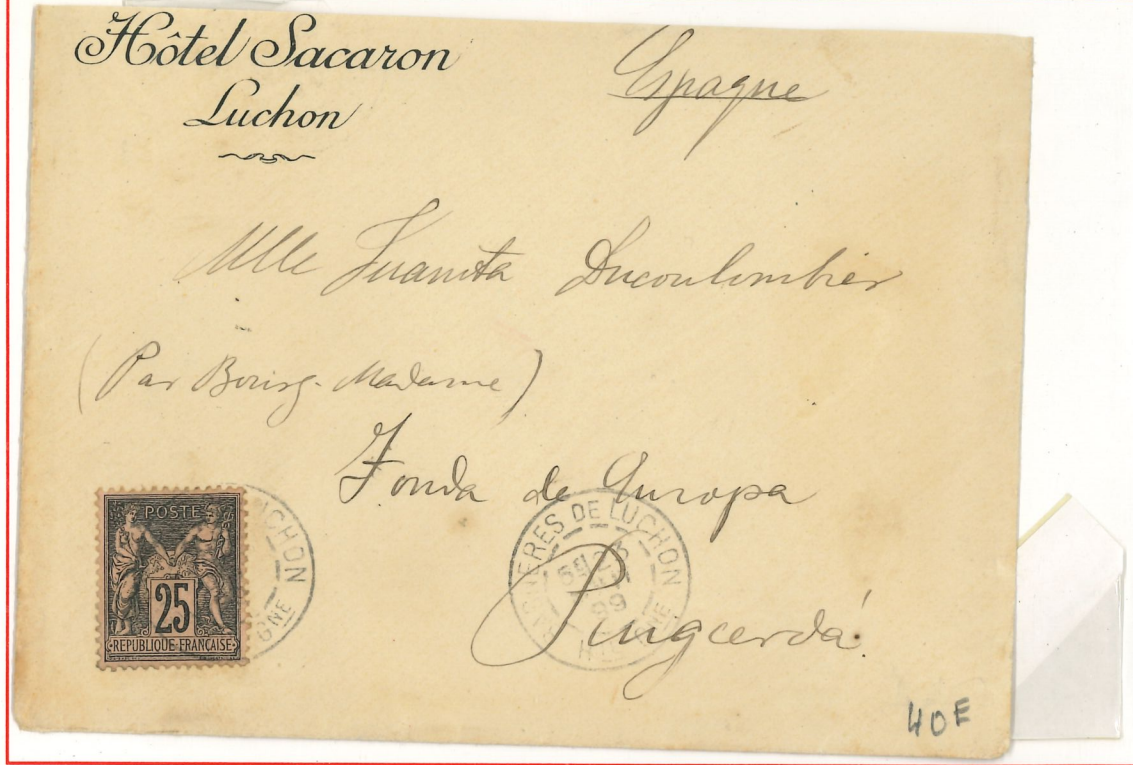 Hôtel Sacaron
Luchon
Espagne
Mlle Juanita Ducoulombier
(Par Bourg-Madame)
Fonda de Europa
Puigcerdá
POSTE
25
REPUBLIQUE FRANÇAISE
LUCHON
GNE
BAGNERES DE LUCHON
99
HTE GARONNE
40E